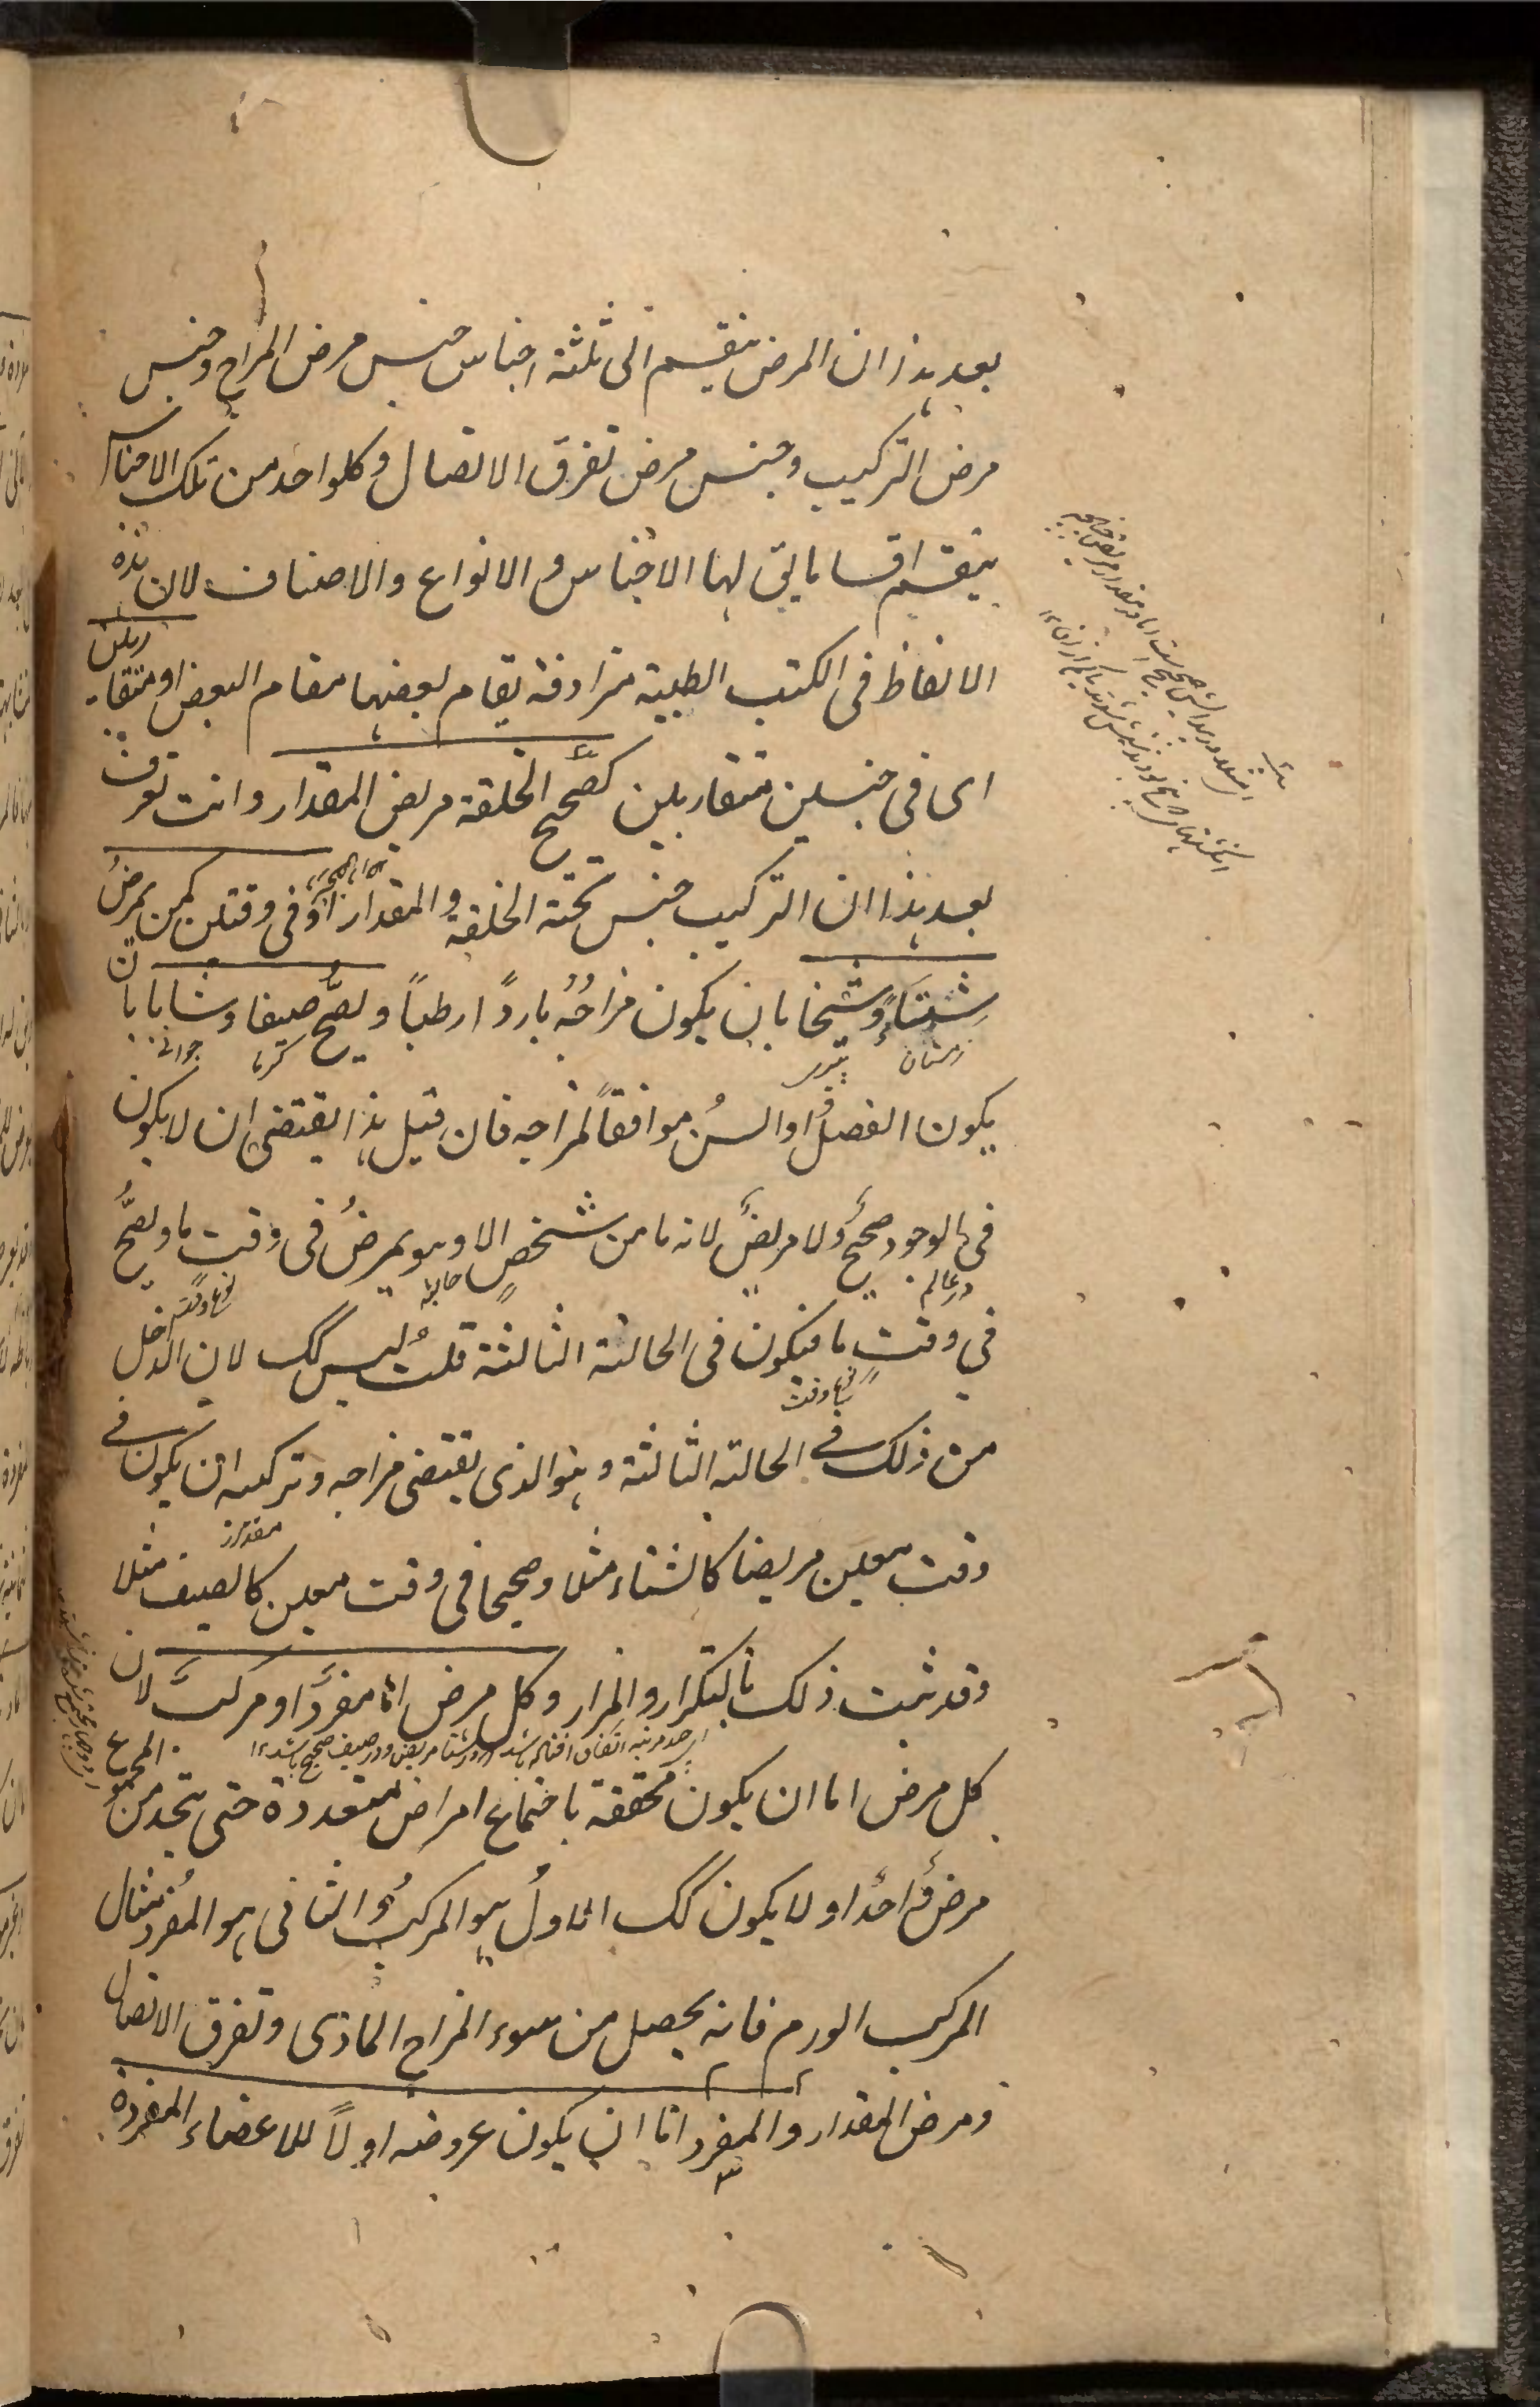 بعد هذا ان المرض ينقسم الى ثلثة اجناس جنس مرض المزاج وجنس
مرض التركيب وجنس مرض تفرق الاتصال وكلواحد من تلك الاجناس
ينقسم اقساما يق لها الاجناس والانواع والاصناف لان هذه
الالفاظ فى الكتب الطبية مترادفة يقام بعضها مقام البعض او متقاربين
اى فى جنسين متقاربين كصحيح الخلقة مريض المقدار وانت تعرف
بعد هذا ان التركيب جنس تحته الخلقة والمقدار او فى وقتين كمن يمرض
شتاءً وشيخا بان يكون مزاجُه باردًا رطبًا ويصحُّ صيفا وشابا بان
زمستان
پیری
گرما
جوانے
يكون الفصلُ او السنُ موافقًا لمزاجه فان قيل هذا يقتضى ان لا يكون
فى الوجود صحيحٌ ولا مريضٌ لانه ما من شخصٍ الا وهو يمرضُ فى وقت ما ويصحُّ
در عالم
فى وقت ما فيكون فى الحالة الثالثة قلتُ ليس كك لان الداخل
من ذلك فى الحالة الثالثة وهو الذى يقتضى مزاجه وتركيبه ان يكون فى
وقت معين مريضا كالشتاء مثلا وصحيحا فى وقت معين كالصيف مثلا
وقد ثبت ذلك بالتكرار والمرار وكل مرض اما مفرد او مركب لان
در شتا مريض ودر صيف صحيح باشد ١٢
كل مرض اما ان يكون تحققه باجتماع امراض متعددة حتى يتحد من المجموع
مرض واحد او لا يكون كك الاولُ هو المركبُ والثانى هو المفردُ مثال
المركب الورم فانه يحصل من سوء المزاج المادى وتفرق الاتصال
ومرض المقدار والمفرد اما ان يكون عروضه اولاً للاعضاء المفردة